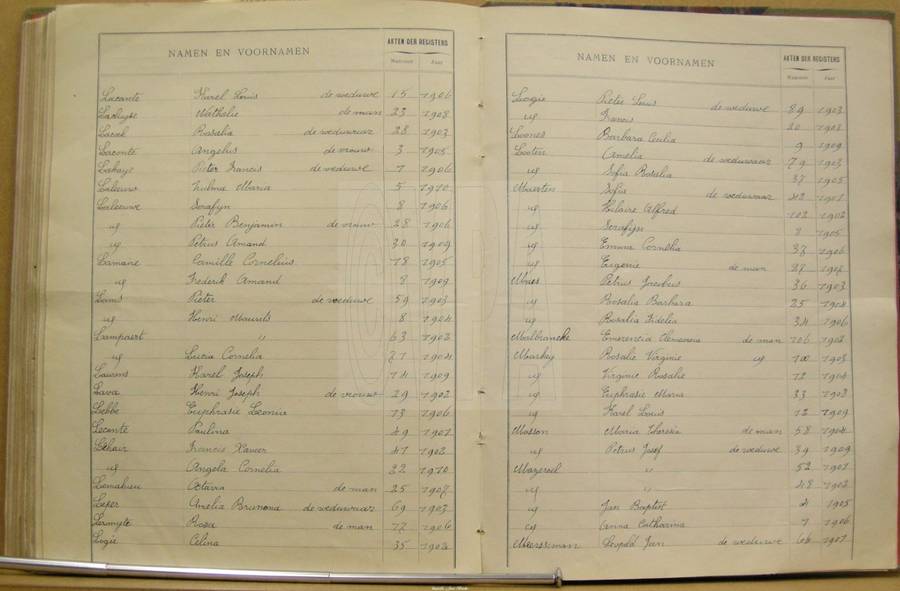 NAMEN EN VOORNAMEN AKTEN DER REGISTERS
Nummer Jaar
Lacante Karel Louis de weduwe 15 1906
Lachype Nathalie de man 23 1908
Lacok Rosalia de weduwnaar 28 1903
Laconte Angelus de vrouw 3 1905
Lahaye Pieter Francis de weduwe 7 1906
Laleeuw Zulma Maria 5 1910
Laleeuwe Serafijn 8 1906
ug Pieter Benjamin de vrouw 28 1906
ug Petrus Amand 30 1909
Lamaire Camille Cornelius 18 1905
ug Frederik Amand 8 1909
Lams Pieter de weduwe 59 1903
ug Henri Maurits 8 1904
Lampaert " 63 1902
ug Lucia Cornelia 71 1904
Lauwens Karel Joseph 14 1909
Lava Henri Joseph de vrouw 29 1902
Lebbe Euphrasie Leonia 13 1906
Leconte Paulina 49 1901
Francis Xavier 41 1902
ug Angela Cornelia 22 1910
Lemahieu Octavia de man 25 1907
Leper Amelia Brunona de weduwnaar 69 1903
Lermyte Rosa de man 77 1906
Logie Celina 35 1902
NAMEN EN VOORNAMEN AKTEN DER REGISTERS
Nummer Jaar
Logie Pieter Louis de weduwe 89 1903
ug Francis 20 1908
Loones Barbara Cecilia 9 1909
Looten Amelia de weduwnaar 79 1903
ug Sofia Rosalia 37 1905
Maerten Sofia de weduwnaar 42 1901
ug Hilaire Alfred 102 1902
ug Serafijn 8 1905
ug Emma Cornelia 37 1906
ug Eugenie de man 27 1907
Maes Petrus Jacobus 36 1903
ug Rosalia Barbara 25 1904
ug Rosalia Fidelia 34 1906
Malbrancke Emerencia Clemencia de man 106 1902
Maerkey Rosalie Virginie ug 100 1903
ug Virginie Rosalie 12 1904
ug Euphrasie Maria 33 1908
ug Karel Louis 12 1909
Masson Maria Theresia de man 58 1904
ug Petrus Josef de weduwe 39 1909
Mazereel " 52 1901
ug " 48 1902
ug Jan Baptist 4 1905
ug Anna Catharina 7 1906
Meersseman Leopold Jan de weduwe 66 1901